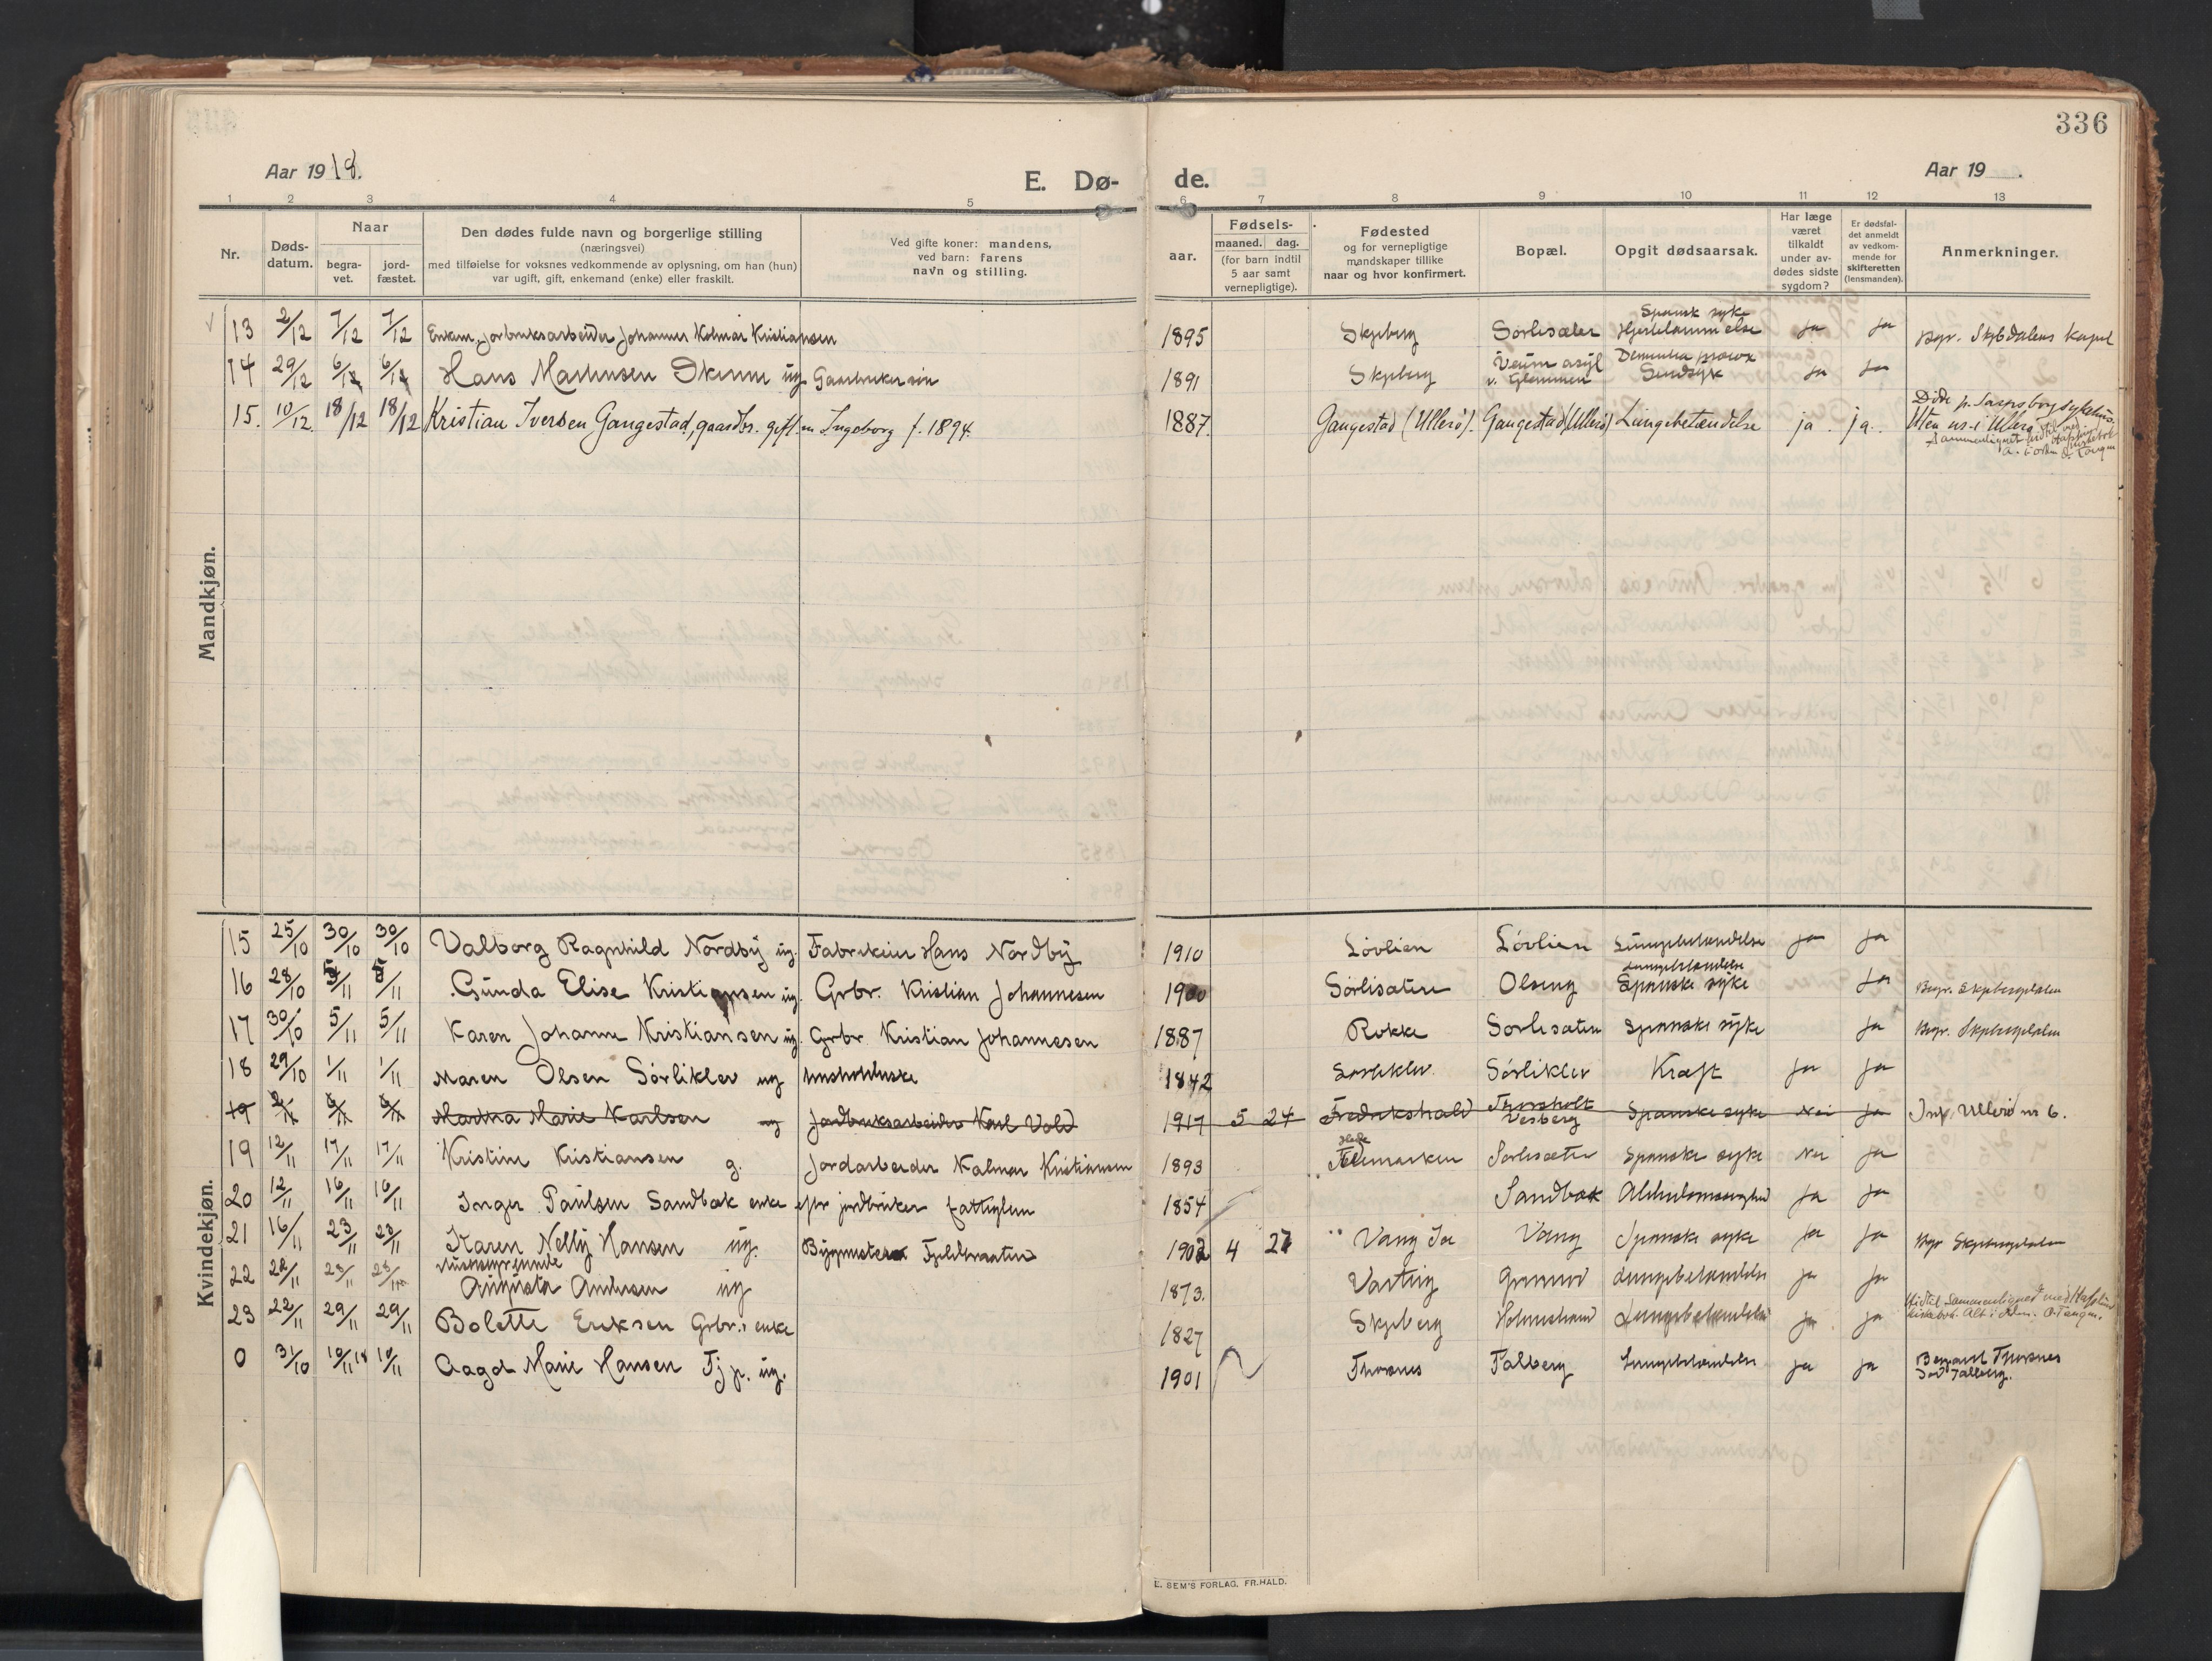 336
Aar 1918.
E. Dø-
de.
Aar 19
1 2 3 4 5 6 7 8 9 10 11 12 13
Nr.
Døds-
datum.
Naar
begra-
vet.
jord-
fæstet.
Den dødes fulde navn og borgerlige stilling
(næringsvei)
med tilføielse for voksnes vedkommende av oplysning, om han (hun)
var ugift, gift, enkemand (enke) eller fraskilt.
Ved gifte koner: mandens,
ved barn: farens
navn og stilling.
aar.
Fødsels-
maaned. dag.
(for barn indtil
5 aar samt
vernepligtige).
Fødested
og for vernepligtige
mandskaper tillike
naar og hvor konfirmert.
Bopæl.
Opgit dødsaarsak.
Har læge
været
tilkaldt
under av-
dødes sidste
sygdom?
Er dødsfal-
det anmeldt
av vedkom-
mende for
skifteretten
(lensmanden).
Anmerkninger.
Mandkjøn.
13 2/12 7/12 7/12 Enkem. jorbruksarbeider Johannes Kolmar Kristiansen 1895 Skjeberg Sørlisæter Spansk syke Hjertelammelse ja ja Begr. Skjebdalens kapel
14 29/12 6/12 6/12 Hans Martinsen ug Gaardbruker 1891 Skjeberg Veum asyl v. Glemmen Sindsyk ja ja
15. 10/12 18/12 18/12 Kristian Iversen Gangestad, gaardbr. gift m Ingeborg f. 1894. 1887. Gangestad (Ullerø). Gangestad (Ullerø) Lungebetændelse ja. ja. Døde p. Sarpsborg sykehus.
Uten nr. i Ullerø
Kvindekjøn.
15 25/10 30/10 30/10 Valborg Ragnhild Nordby ug. Fabrikeier Hans Nordby 1910 Løvlien Løvlien Lungebetændelse ja ja
16 28/10 5/11 5/11 Gunda Elise Kristiansen ug. Grbr. Kristian Johannesen 1900 Sørlisæter Olseng Lungebetændelse Spanske syke ja Begr. Skjebergdalen
17 30/10 5/11 5/11 Karen Johanne Kristiansen ug. Grbr. Kristian Johannesen 1887 Rokke Sørlisæter Spanske syke ja Begr. Skjebergdalen
18 29/10 1/11 1/11 Maren Olsen Sørliklev ug husholderske 1842 Sørliklev Sørliklev Kræft ja ja
19 Martha Marie Karlsen ug Jordbruksarbeider Karl Vold 1917 5 24 Fredrikshald Thorsholt Vesberg Spanske syke Nei ja Inf. Ullerø nr 6.
19 12/11 17/11 17/11 Kristine Kristiansen g. Jordarbeider Kalmar Kristiansen 1893 Sørlisæter Spanske syke Nei ja
20 12/11 16/11 16/11 Inger Paulsen Sandbæk enke efter jordbruker fattiglem 1854 Sandbæk ja ja
21 16/11 23/11 23/11 Karen Nelly Hansen ug. Bygmester 1902 4 27 Vang Vang Spanske syke ja ja Begr Skjebergdalen
22 22/11 28/11 28/11 Husstyrende Augusta Andersen ug 1873. Varteig Lungebetændelse ja ja
23 22/11 29/11 29/11 Bolette Eriksen Grbr.s enke 1827 Skjeberg Holmestrand Lungebetændelse ja ja Hidtil sammenlignet med Hafslund
kirkebok. Alt i orden. O. Tangen.
0 31/10 10/11 18 10/11 Aagot Marie Hansen Tj p. ug. 1901 Thorsnes Falberg Lungebetændelse ja ja Begravet Thorsnes
Falberg.
E. SEM'S FORLAG, FR.HALD.